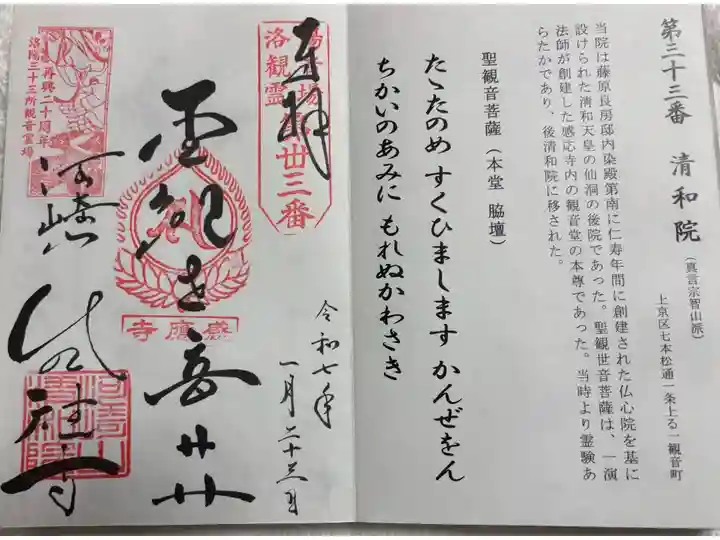 第三十三番 清和院(真言宗智山派)
上京区七本松通一条上る一観音町
当院は藤原良房邸内染殿第南に仁寿年間に創建された仏心院を基に
設けられた清和天皇の仙洞の後院であった。聖観世音菩薩は、一演
法師が創建した感応寺内の観音堂の本尊であった。当時より霊験あ
らたかであり、後清和院に移された。
聖観音菩薩(本堂 脇壇)
たゝたのめ すくひまします かんぜをん
ちかいのあみに もれぬかわさき
奉拝
洛陽観音霊場
第卅三番
令和七年
一月二十三日
感應寺
再興二十周年
洛陽三十三所観音霊場
河崎